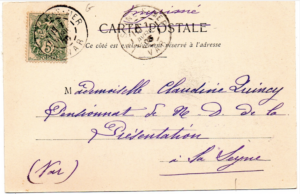 Imprimé
CARTE POSTALE
Ce côté est exclusivement réservé à l'adresse
Mademoiselle Claudine Quincy
Pensionnat de N. D de la
Présentation
à La Seyne
(Var)